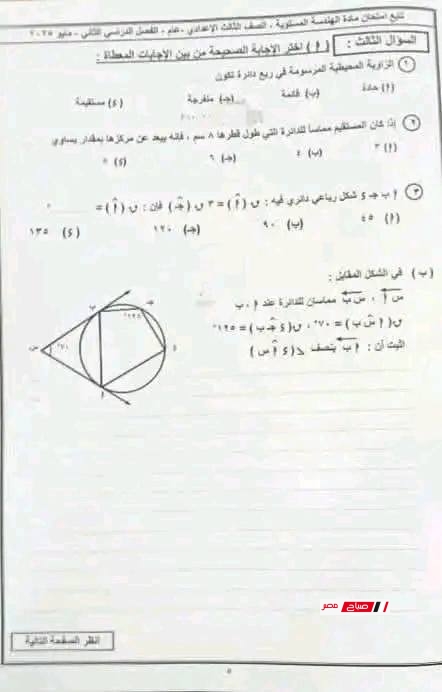 تابع امتحان مادة الهندسة المستوية ، الصف الثالث الإعدادي - عام ، الفصل الدراسي الثاني - مايو ٢٠٢٥
السؤال الثالث : ( أ ) اختر الإجابة الصحيحة من بين الإجابات المعطاة :
١ الزاوية المحيطية المرسومة في ربع دائرة تكون
(أ) حادة (ب) قائمة (جـ) منفرجة (د) مستقيمة
٢ إذا كان المستقيم مماساً للدائرة التي طول قطرها ٨ سم ، فإنه يبعد عن مركزها بمقدار يساوي
(أ) ٣ (ب) ٤ (جـ) ٦ (د)
٣ أ ب جـ د شكل رباعي دائري فيه : ق (أ) = ٣ ق (جـ) فإن : ق (أ) = °
(أ) ٤٥ (ب) ٩٠ (جـ) ١٢٠ (د) ١٣٥
(ب) في الشكل المقابل :
س أ ، س ب مماسان للدائرة عند أ ، ب
ق (أ س ب) = ٧٠° ، ق (د جـ ب) = ١٢٥°
اثبت أن : أ ب ينصف ∠ (د أ س)
ب
جـ
١٢٥°
س
٧٠°
د
أ
صباح مصر
انظر الصفحة التالية
٥